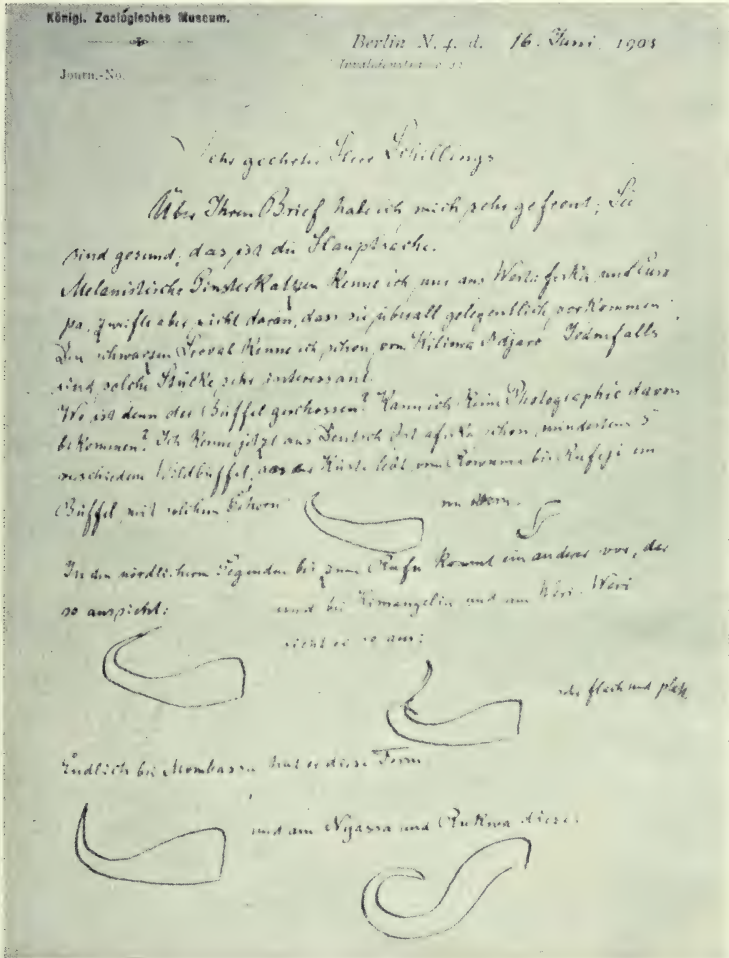 Königl. Zoologisches Museum.
Berlin N. 4. d. 16. Juni 1903
Journ.-No.
Sehr geehrter Herr Schillings
Über Ihren Brief habe ich mich sehr gefreut; Sie
sind gesund, das ist die Hauptsache.
Melanistische Ginsterkatzen kenne ich nur aus Westafrika und Euro
pa, zweifle aber nicht daran, dass sie überall gelegentlich vorkommen.
Den schwarzen Serval kenne ich schon vom Kilima Ndjaro. Jedenfalls
sind solche Stücke sehr interessant.
Wo ist denn der Büffel geschossen? Kann ich keine Photographie davon
bekommen? Ich kenne jetzt aus Deutsch Ost afrika schon mindestens 5
verschiedene Wildbüffel, an der Küste lebt vom Rowuma bis Rufiji ein
Büffel mit solchen Hörnern von vorn.
In den nördlicheren Gegenden bis zum Rufu kommt ein anderer vor, der
so aussieht: und bei Kimangelia und am Weri-Weri
sieht er so aus:
sehr flach und platt
Endlich bei Mombassa hat er diese Form
und am Nyassa und Rukwa diese: